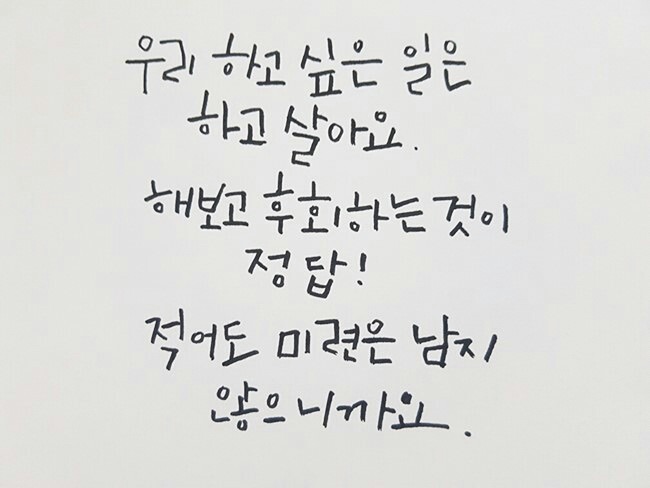 우리 하고 싶은 일은
하고 살아요.
해보고 후회하는 것이
정답!
적어도 미련은 남지
않으니까요.